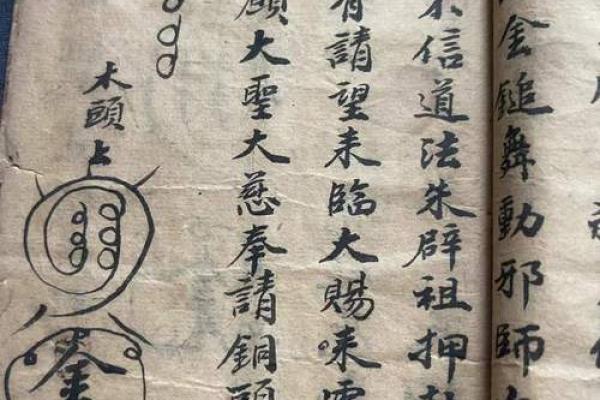 金鎚舞動邪師
不信道法朱辟祖押
有請望来臨大賜
大聖大慈奉請銅頭
木頭上
金